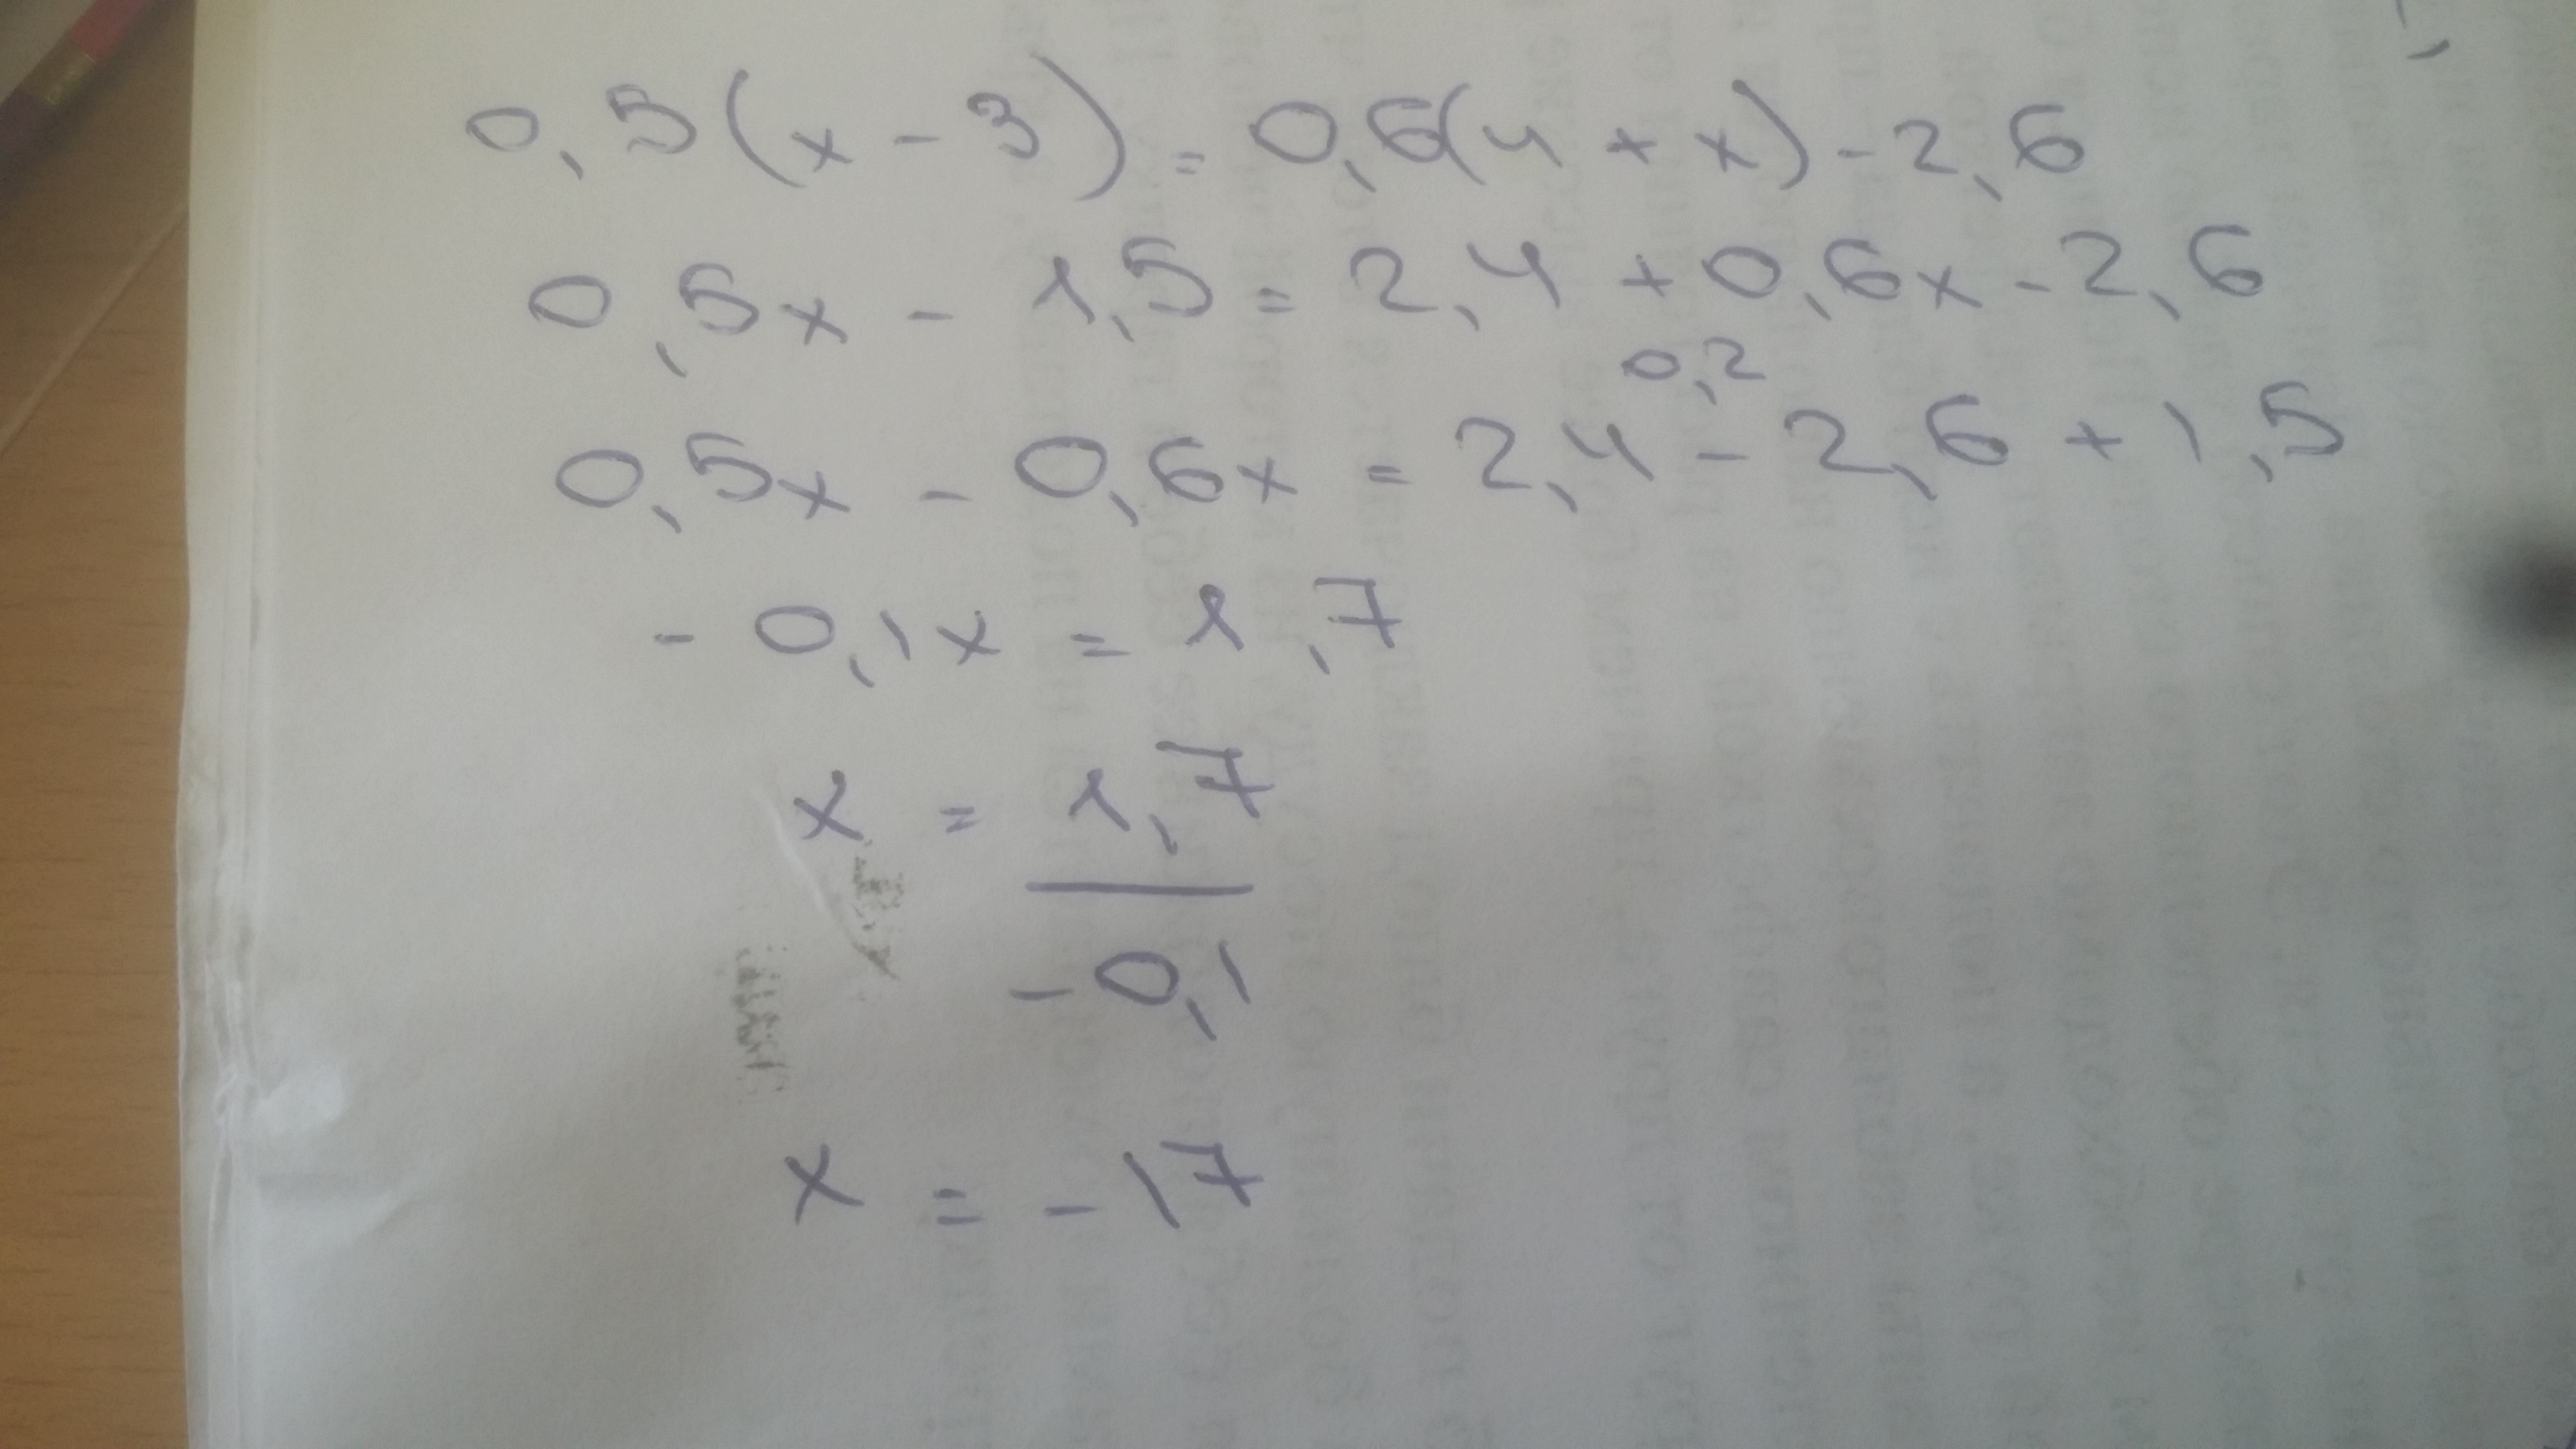 0,5(x - 3) = 0,6(4 + x) - 2,6
0,5x - 1,5 = 2,4 + 0,6x - 2,6
0,2
0,5x - 0,6x = 2,4 - 2,6 + 1,5
- 0,1x = 1,7
x = 1,7
- 0,1
x = - 17